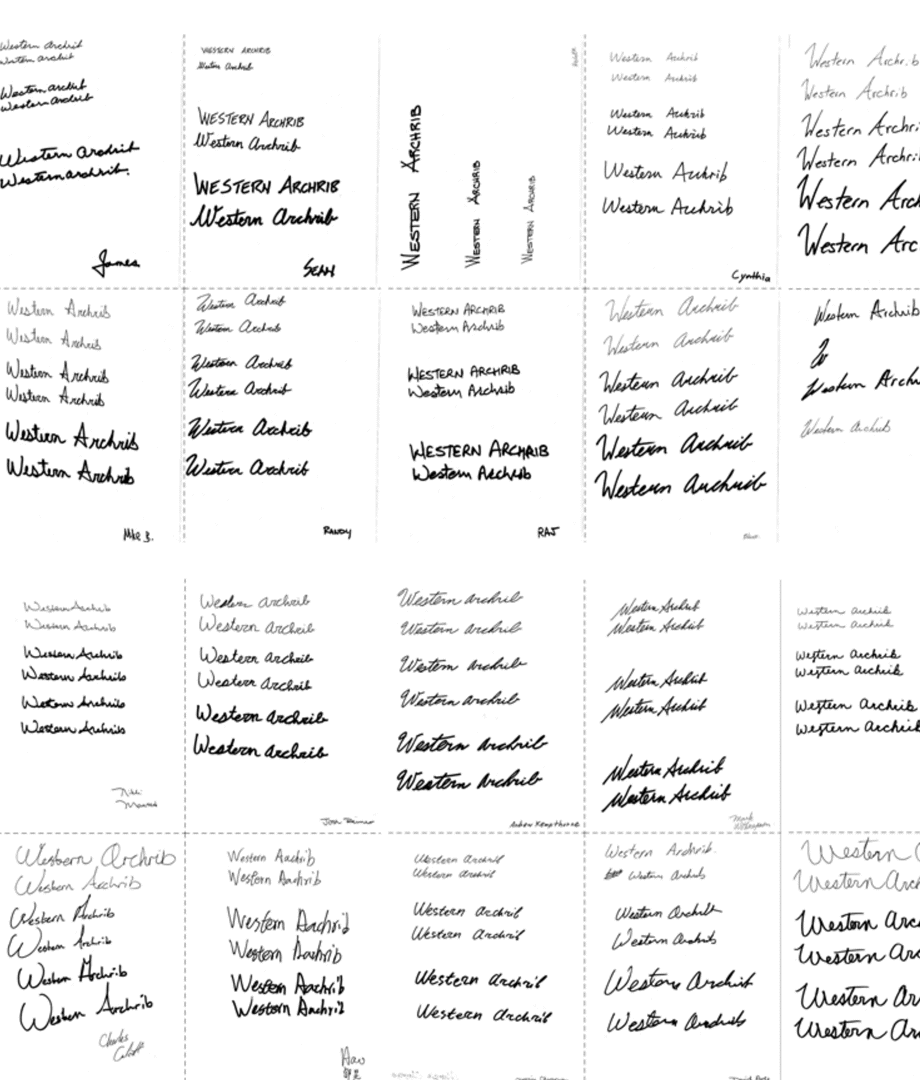 Western Archrib
Western archrib
Western archrib
Western archrib
Western archrib
Western archrib.
James
WESTERN ARCHRIB
Western Archrib
WESTERN ARCHRIB
Western Archrib
WESTERN ARCHRIB
Western Archrib
SEAN
WESTERN ARCHRIB
WESTERN ARCHRIB
WESTERN ARCHRIB
Western Archrib
Western Archrib
Western Archrib
Western Archrib
Western Archrib
Western Archrib
Cynthia
Western Archrib
Western Archrib
Western Archri
Western Archri
Western Arch
Western Arc
Western Archrib
Western Archrib
Western Archrib
Western Archrib
Western Archrib
Western Archrib
Mike B.
Western Archrib
Western Archrib
Western Archrib
Western Archrib
Western Archrib
Western Archrib
RANDY
WESTERN ARCHRIB
Western Archrib
WESTERN ARCHRIB
Western Archrib
WESTERN ARCHRIB
Western Archrib
RAJ
Western Archrib
Western Archrib
Western Archrib
Western Archrib
Western Archrib
Western Archrib
Western Archrib
W
Western Archr
Western Archrib
Western Archrib
Western Archrib
Western Archrib
Western Archrib
Western Archrib
Western Archrib
Nikki
Western archrib
Western archrib
Western archrib
Western archrib
Western archrib
Western archrib
Western archrib
Western archrib
Western archrib
Western archrib
Western archrib
Western archrib
Andrew Kempthorne
Western Archrib
Western Archrib
Western Archrib
Western Archrib
Western Archrib
Western Archrib
Mark
Western Archrib
Western Archrib
Western Archrib
Western Archrib
Western Archrib
Western Archrib
Western Archrib
Western Archrib
Western Archrib
Western Archrib
Western Archrib
Western Archrib
Charles
Western Archrib
Western Archrib
Western Archrib
Western Archrib
Western Archrib
Western Archrib
Western archrib
Western archrib
Western archrib
Western archrib
Western archrib
Western archrib
Western Archrib.
Western Archrib
Western Archrib
Western Archrib
Western Archrib
Western Archrib
Western
Western Arch
Western Arc
Western Arc
Western Ar
Western Arc